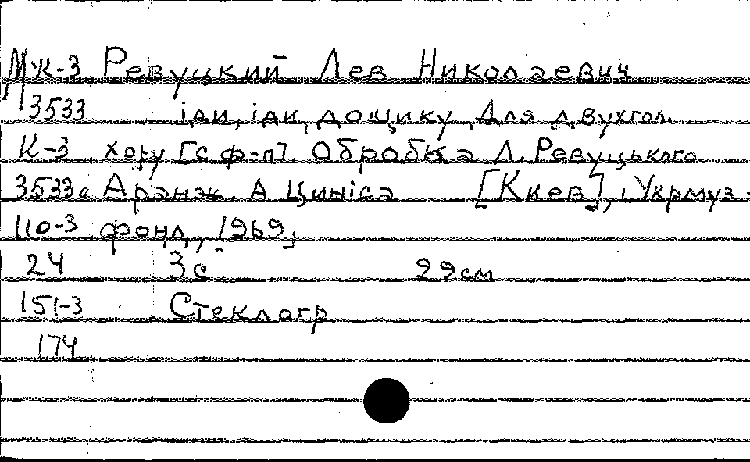 МЖ-3 Ревуцкий Лев Николаевич
3533 іди, іди, дощику. Для двухгол.
К-3 хору [с ф-п]. Обробка Л. Ревуцького
3533а Аранж. А Циніса [Киев], Укрмуз-
110-3 фонд, 1969.
24 3с 29см
151-3 Стеклогр
174